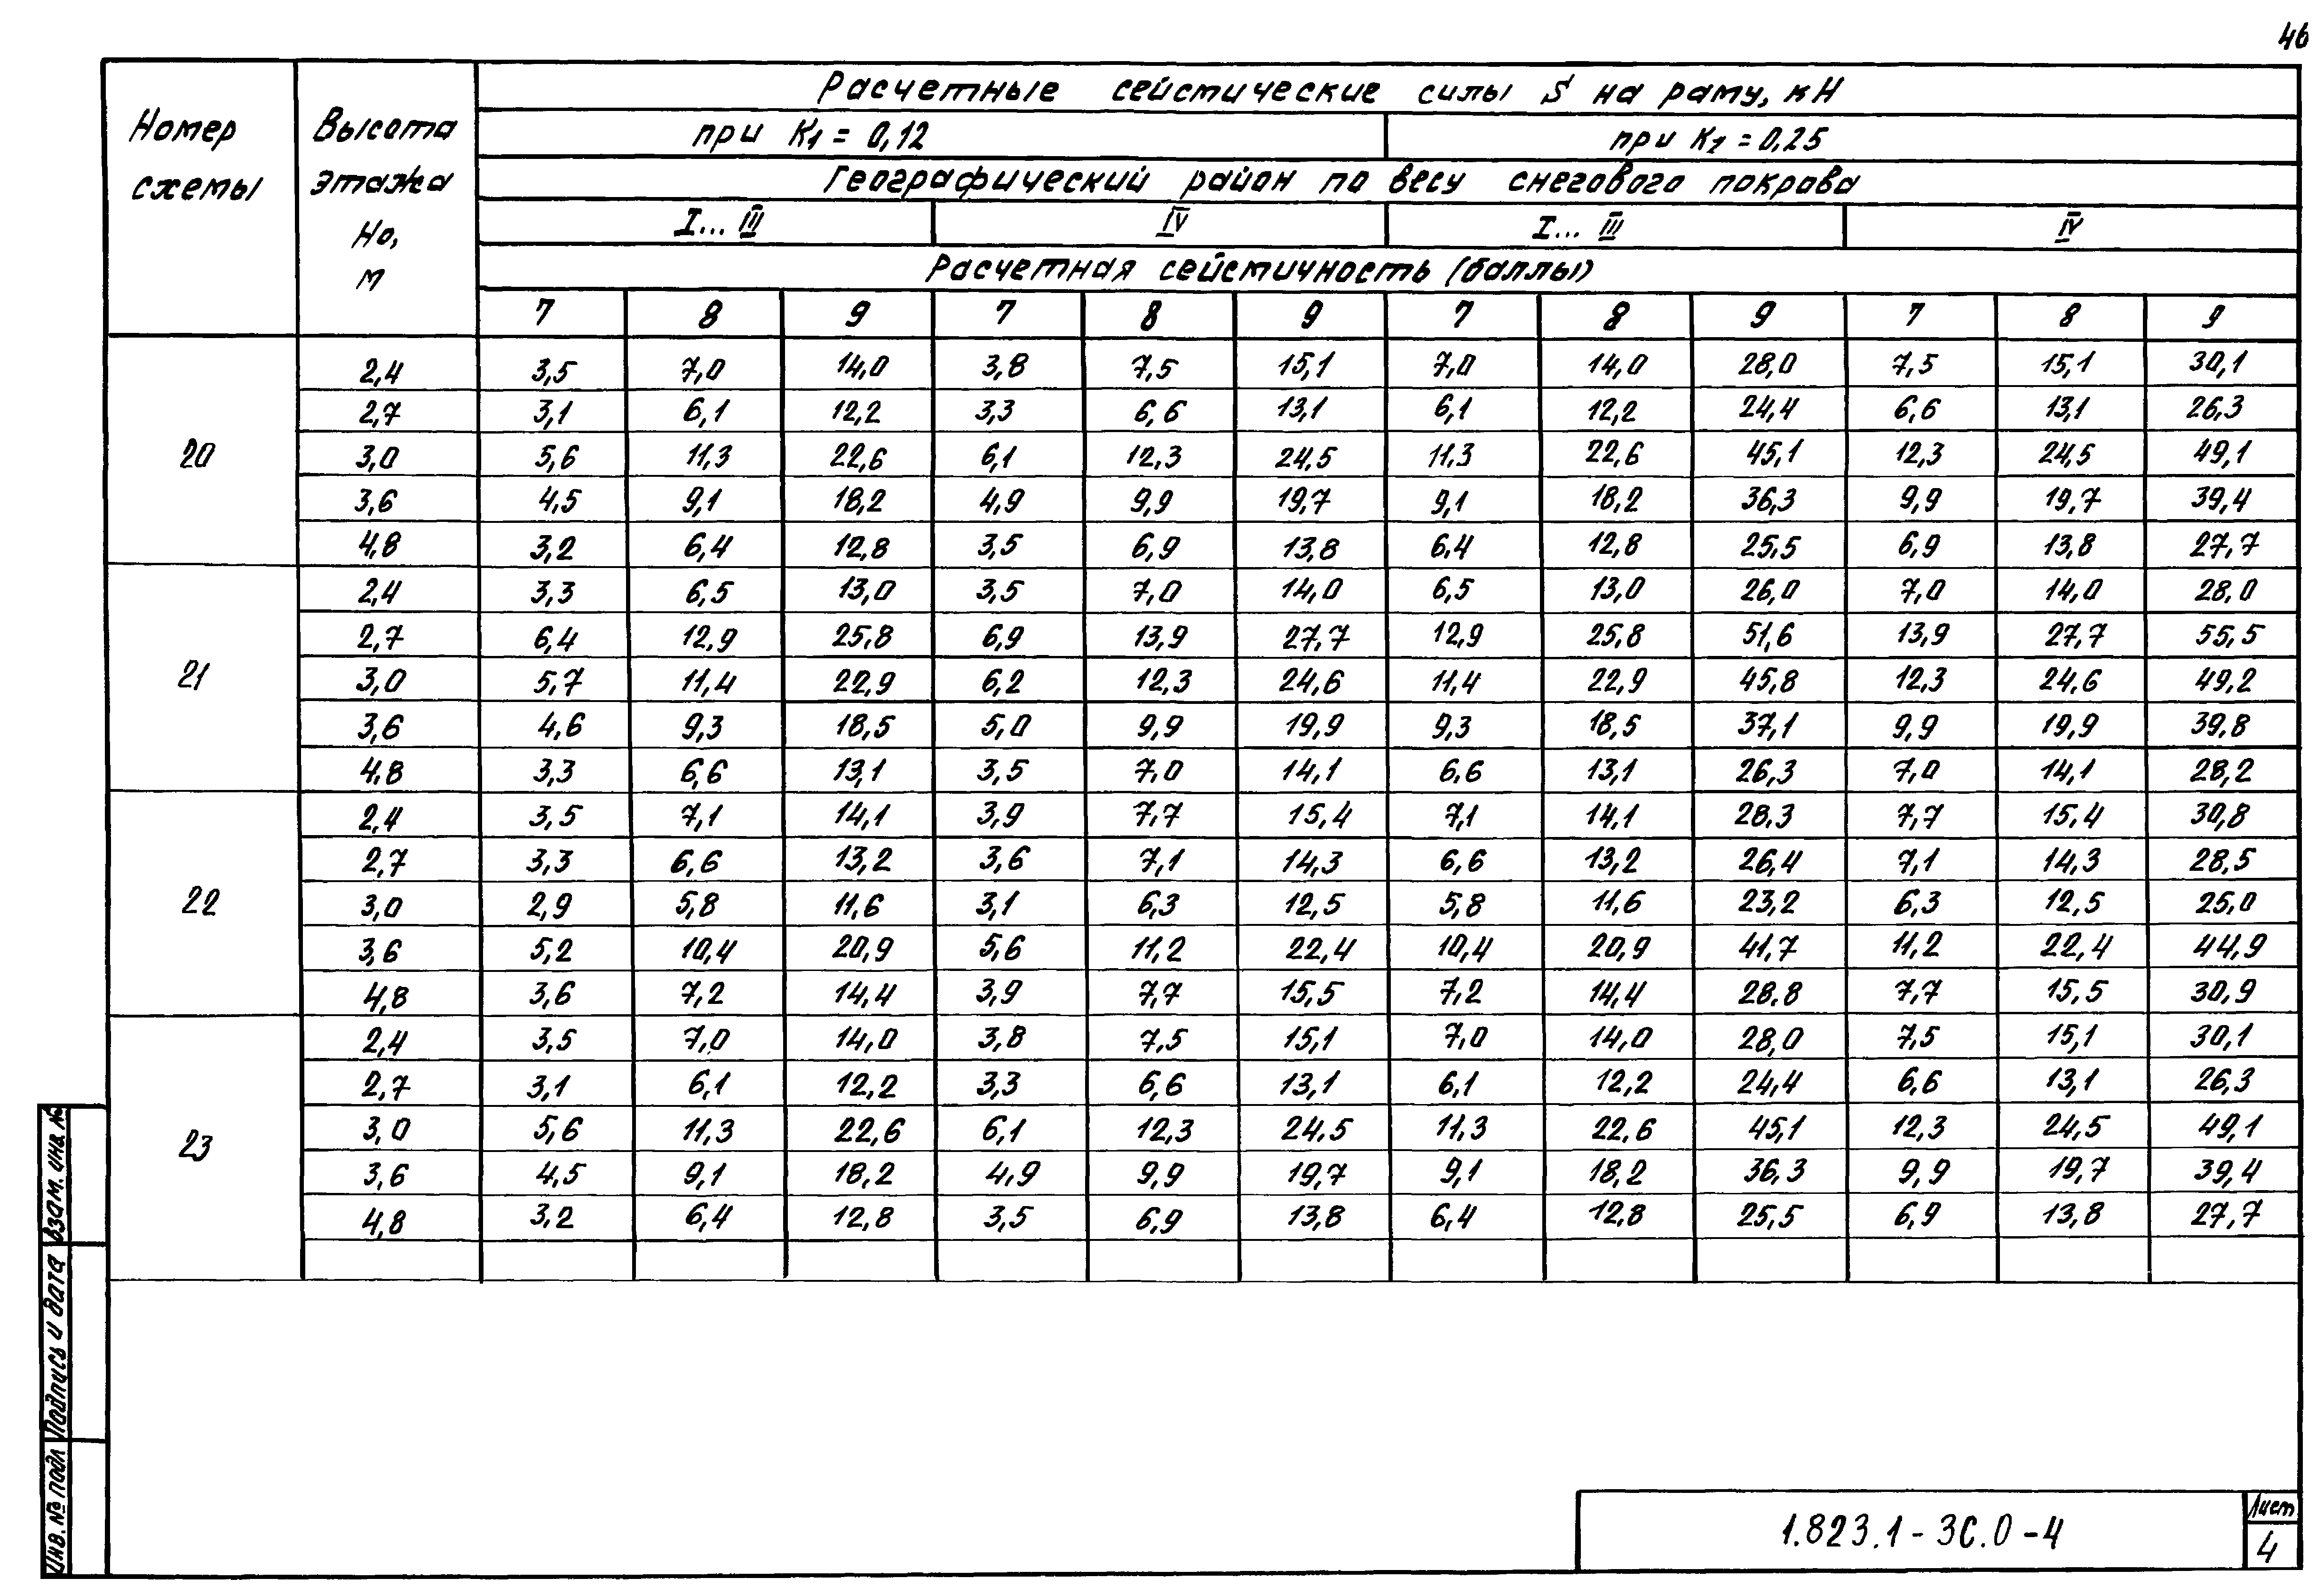 46
Номер схемы
Высота этажа Но, м
Расчетные сейсмические силы S на раму, кН
при К1 = 0,12
при К1 = 0,25
Географический район по весу снегового покрова
I... III
IV
I... III
IV
Расчетная сейсмичность (баллы)
7 8 9 7 8 9 7 8 9 7 8 9
20
2,4 3,5 7,0 14,0 3,8 7,5 15,1 7,0 14,0 28,0 7,5 15,1 30,1
2,7 3,1 6,1 12,2 3,3 6,6 13,1 6,1 12,2 24,4 6,6 13,1 26,3
3,0 5,6 11,3 22,6 6,1 12,3 24,5 11,3 22,6 45,1 12,3 24,5 49,1
3,6 4,5 9,1 18,2 4,9 9,9 19,7 9,1 18,2 36,3 9,9 19,7 39,4
4,8 3,2 6,4 12,8 3,5 6,9 13,8 6,4 12,8 25,5 6,9 13,8 27,7
21
2,4 3,3 6,5 13,0 3,5 7,0 14,0 6,5 13,0 26,0 7,0 14,0 28,0
2,7 6,4 12,9 25,8 6,9 13,9 27,7 12,9 25,8 51,6 13,9 27,7 55,5
3,0 5,7 11,4 22,9 6,2 12,3 24,6 11,4 22,9 45,8 12,3 24,6 49,2
3,6 4,6 9,3 18,5 5,0 9,9 19,9 9,3 18,5 37,1 9,9 19,9 39,8
4,8 3,3 6,6 13,1 3,5 7,0 14,1 6,6 13,1 26,3 7,0 14,1 28,2
22
2,4 3,5 7,1 14,1 3,9 7,7 15,4 7,1 14,1 28,3 7,7 15,4 30,8
2,7 3,3 6,6 13,2 3,6 7,1 14,3 6,6 13,2 26,4 7,1 14,3 28,5
3,0 2,9 5,8 11,6 3,1 6,3 12,5 5,8 11,6 23,2 6,3 12,5 25,0
3,6 5,2 10,4 20,9 5,6 11,2 22,4 10,4 20,9 41,7 11,2 22,4 44,9
4,8 3,6 7,2 14,4 3,9 7,7 15,5 7,2 14,4 28,8 7,7 15,5 30,9
23
2,4 3,5 7,0 14,0 3,8 7,5 15,1 7,0 14,0 28,0 7,5 15,1 30,1
2,7 3,1 6,1 12,2 3,3 6,6 13,1 6,1 12,2 24,4 6,6 13,1 26,3
3,0 5,6 11,3 22,6 6,1 12,3 24,5 11,3 22,6 45,1 12,3 24,5 49,1
3,6 4,5 9,1 18,2 4,9 9,9 19,7 9,1 18,2 36,3 9,9 19,7 39,4
4,8 3,2 6,4 12,8 3,5 6,9 13,8 6,4 12,8 25,5 6,9 13,8 27,7
Взам. инв. №
Подпись и дата
Инв. № подл
1.823.1-3С.0-4
Лист
4